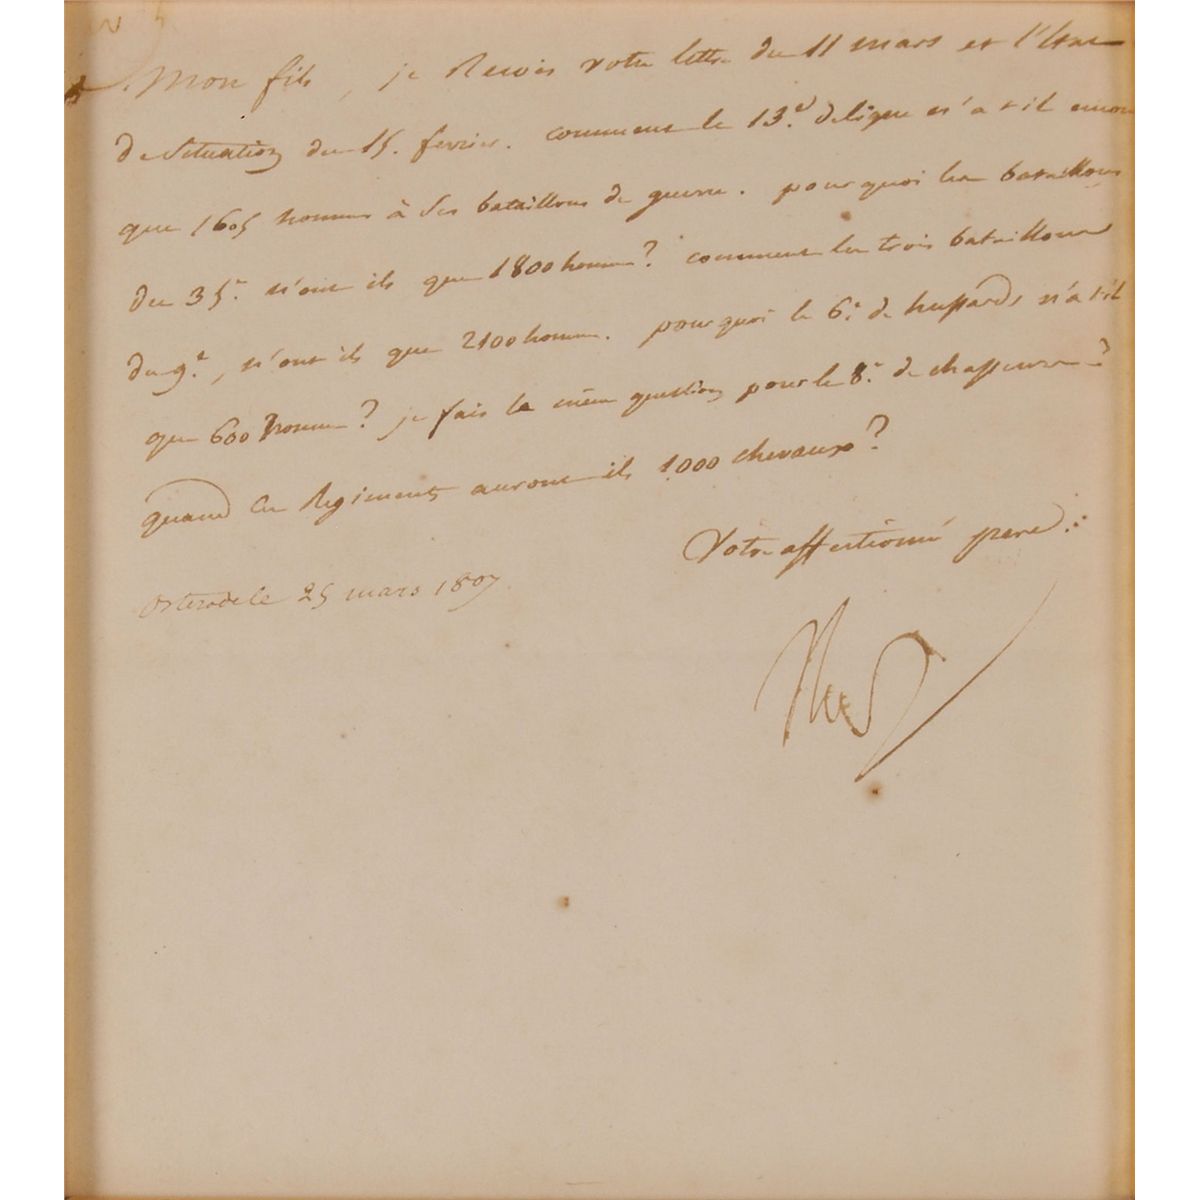 Mon fils, je Recois votre lettre du 11 mars et l'Etat
de Situation du 15. fevrier. comment le 13.e de ligne n'a t il encore
que 1605 hommes à Ses bataillons de guerre. pourquoi les bataillons
du 35.e n'ont ils que 1800 hommes? comment les trois bataillons
du 9.e, n'ont ils que 2100 hommes. pourquoi le 6.e de hussards n'a t il
que 600 hommes? je fais la même question pour le 8.e de chasseurs?
quand ces Regiments auront ils 1000 chevaux?
Votre affectionné pere.
Osterode le 25 mars 1807.